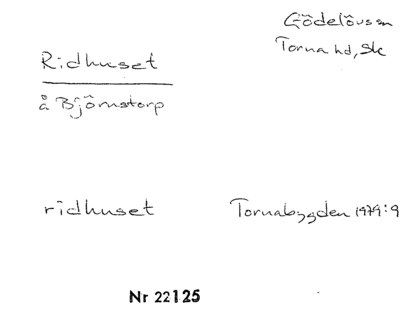 Gödelöv sn
Torna hd, Sk
Ridhuset
å Björnstorp
ridhuset
Tornabygden 1979:9
Nr 22125